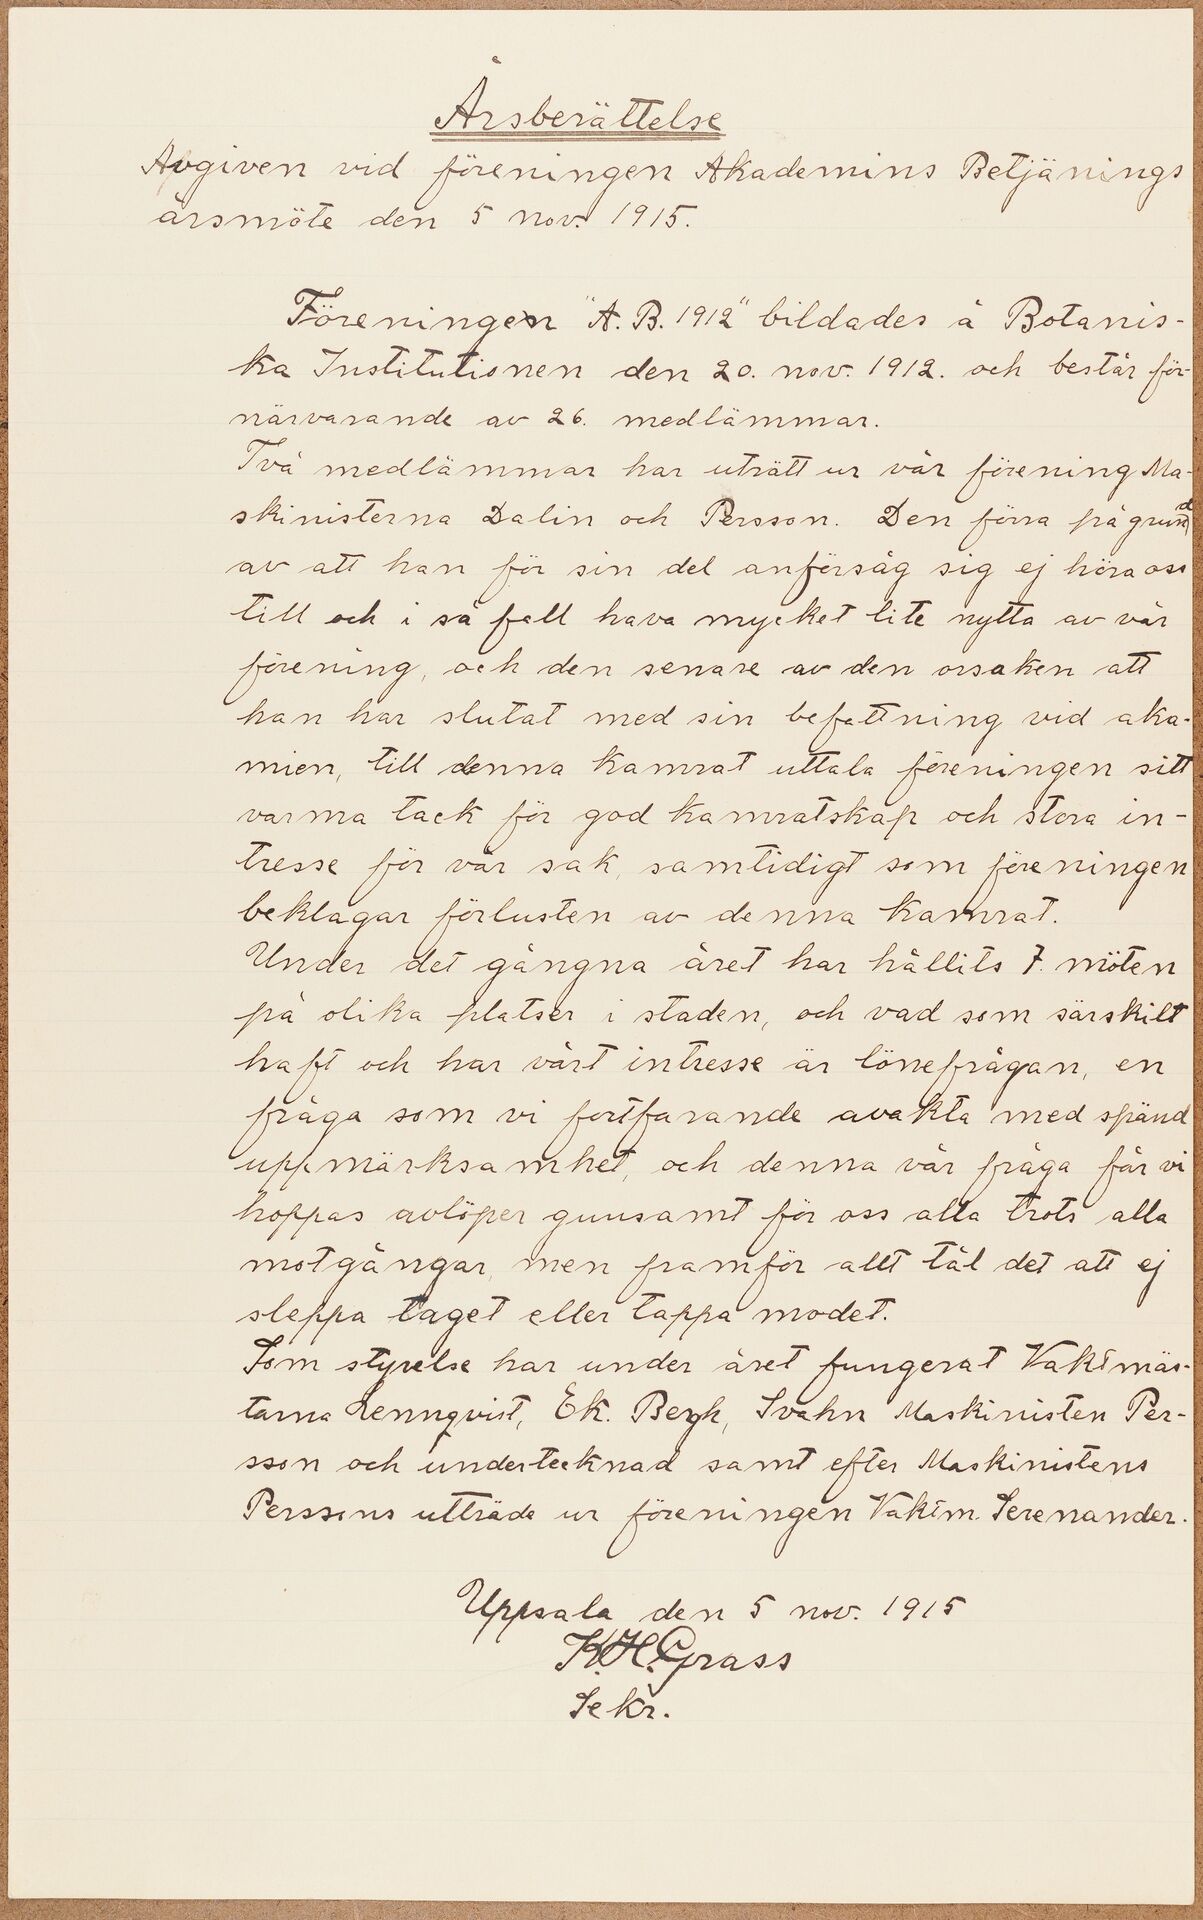 Årsberättelse
Avgiven vid föreningen Akademins Betjänings
årsmöte den 5 nov. 1915.
Föreningen "A. B. 1912" bildades å Botanis-
ka Institutionen den 20. nov. 1912. och består för-
närvarande av 26. medlämmar.
Två medlämmar har uträtt ur vår förening Ma-
skinisterna Dalin och Persson. Den förra på grund
av att han för sin del anförsåg sig ej höra oss
till och i så fall hava mycket lite nytta av vår
förening, och den senare av den orsaken att
han har slutat med sin befattning vid aka-
mien, till denna kamrat uttala föreningen sitt
varma tack för god kamratskap och stora in-
tresse för vår sak, samtidigt som föreningen
beklagar förlusten av denna kamrat.
Under det gångna året har hållits 7. möten
på olika platser i staden, och vad som särskilt
haft och har vårt intresse är lönefrågan, en
fråga som vi fortfarande avakta med spänd
uppmärksamhet, och denna vår fråga får vi
hoppas avlöper gunsamt för oss alla trots alla
motgångar, men framför allt tål det att ej
sleppa taget eller tappa modet.
Som styrelse har under året fungerat Vaktmäs-
tarna Lennqvist, Ek. Bergh, Svahn Maskinisten Per-
sson och undertecknad samt efter Maskinistens
Perssons utträde ur föreningen Vaktm. Serenander.
Uppsala den 5 nov. 1915
K.H. Grass
Sekr.